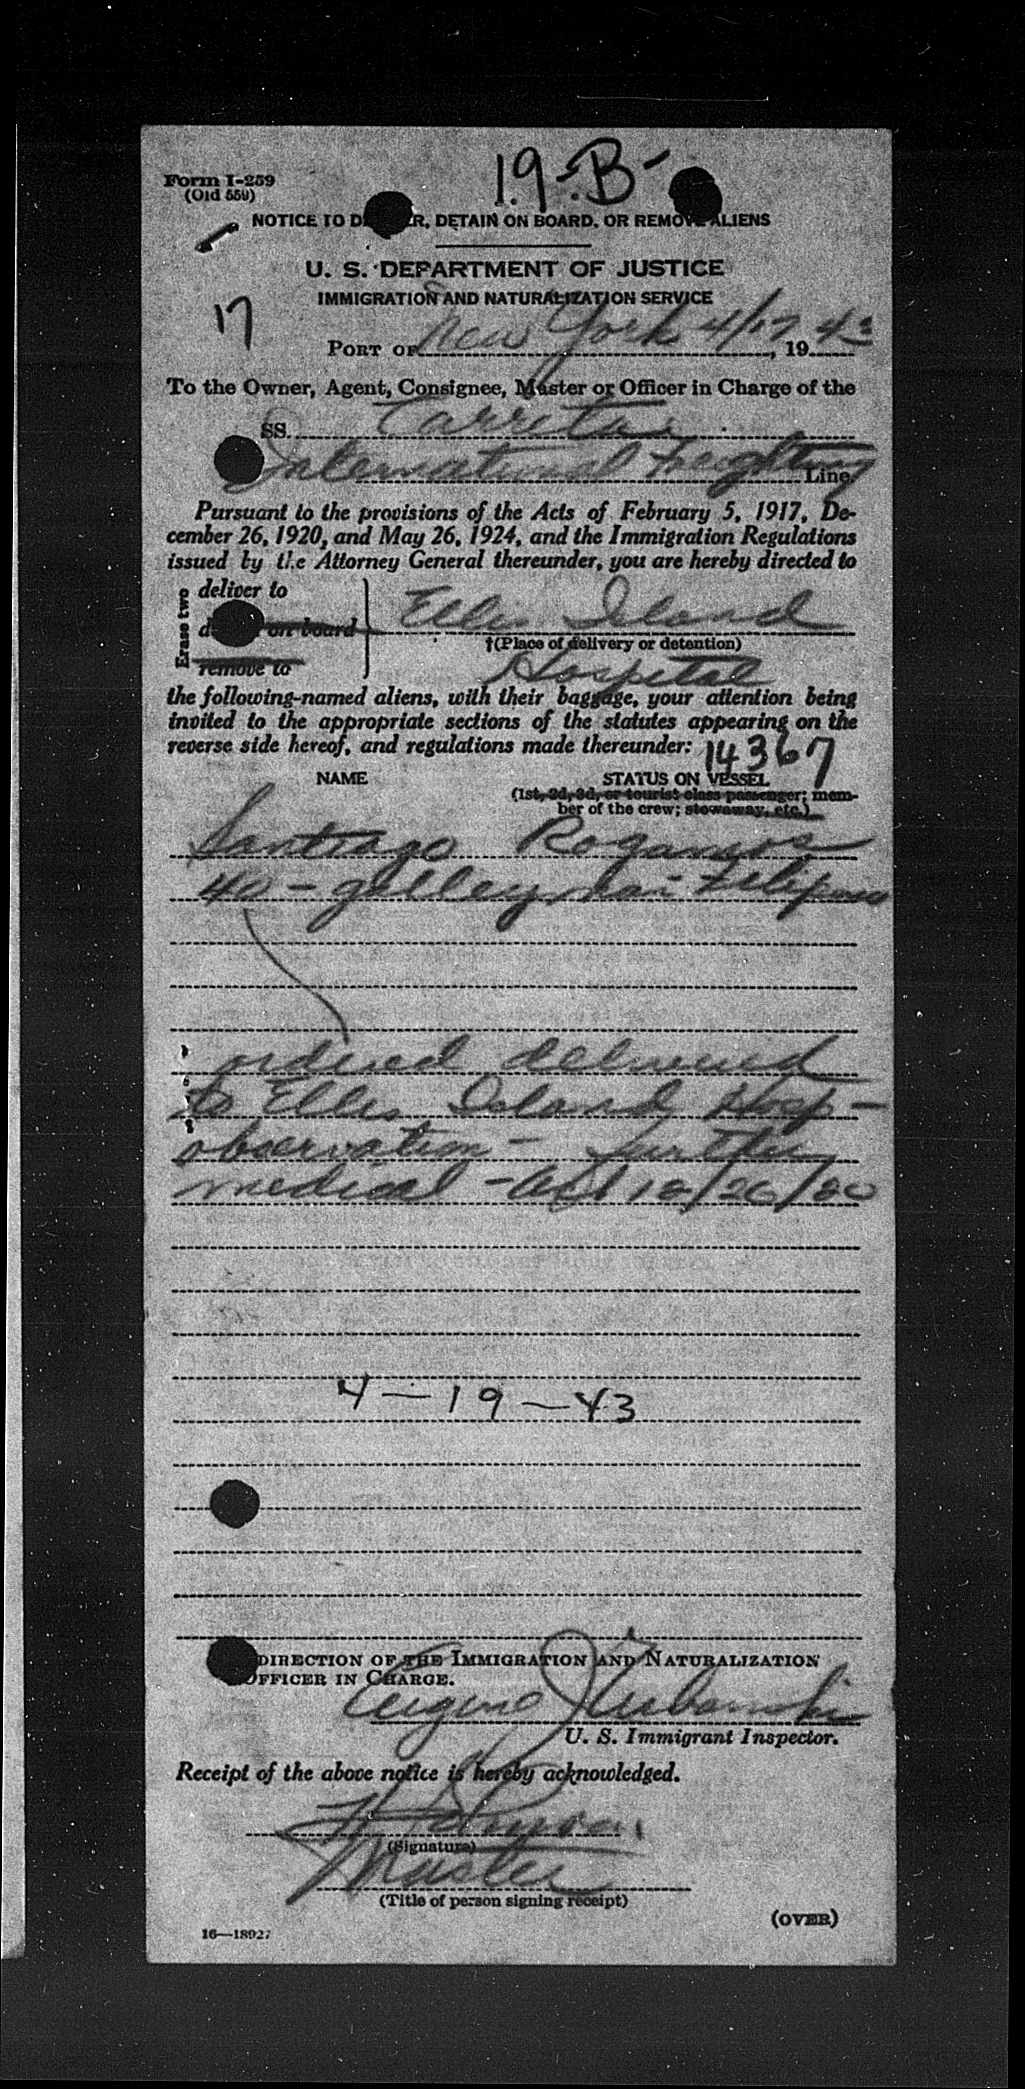 19-B-
Form I-259
(Old 559)
NOTICE TO DETAIN ON BOARD, OR REMOVE ALIENS
U. S. DEPARTMENT OF JUSTICE
IMMIGRATION AND NATURALIZATION SERVICE
17
PORT OF New York 4/17, 1943
To the Owner, Agent, Consignee, Master or Officer in Charge of the
SS.
International Freighting Line.
Pursuant to the provisions of the Acts of February 5, 1917, De-
cember 26, 1920, and May 26, 1924, and the Immigration Regulations
issued by the Attorney General thereunder, you are hereby directed to
Erase two
deliver to
on board
remove to
Ellis Island
†(Place of delivery or detention)
Hospital
the following-named aliens, with their baggage, your attention being
invited to the appropriate sections of the statutes appearing on the
reverse side hereof, and regulations made thereunder:
14367
NAME STATUS ON VESSEL
(1st, 2d, 3d, or tourist class passenger; mem-
ber of the crew; stowaway, etc.)
Santiago
40 - galleyman - Filipino
ordered delivered
to Ellis Island Hosp -
observation - further
medical - Act 12/26/20
4-19-43
DIRECTION OF THE IMMIGRATION AND NATURALIZATION
OFFICER IN CHARGE.
Eugene J Urbanski
U. S. Immigrant Inspector.
Receipt of the above notice is hereby acknowledged.
(Signature)
Master
(Title of person signing receipt)
(OVER)
16—18927